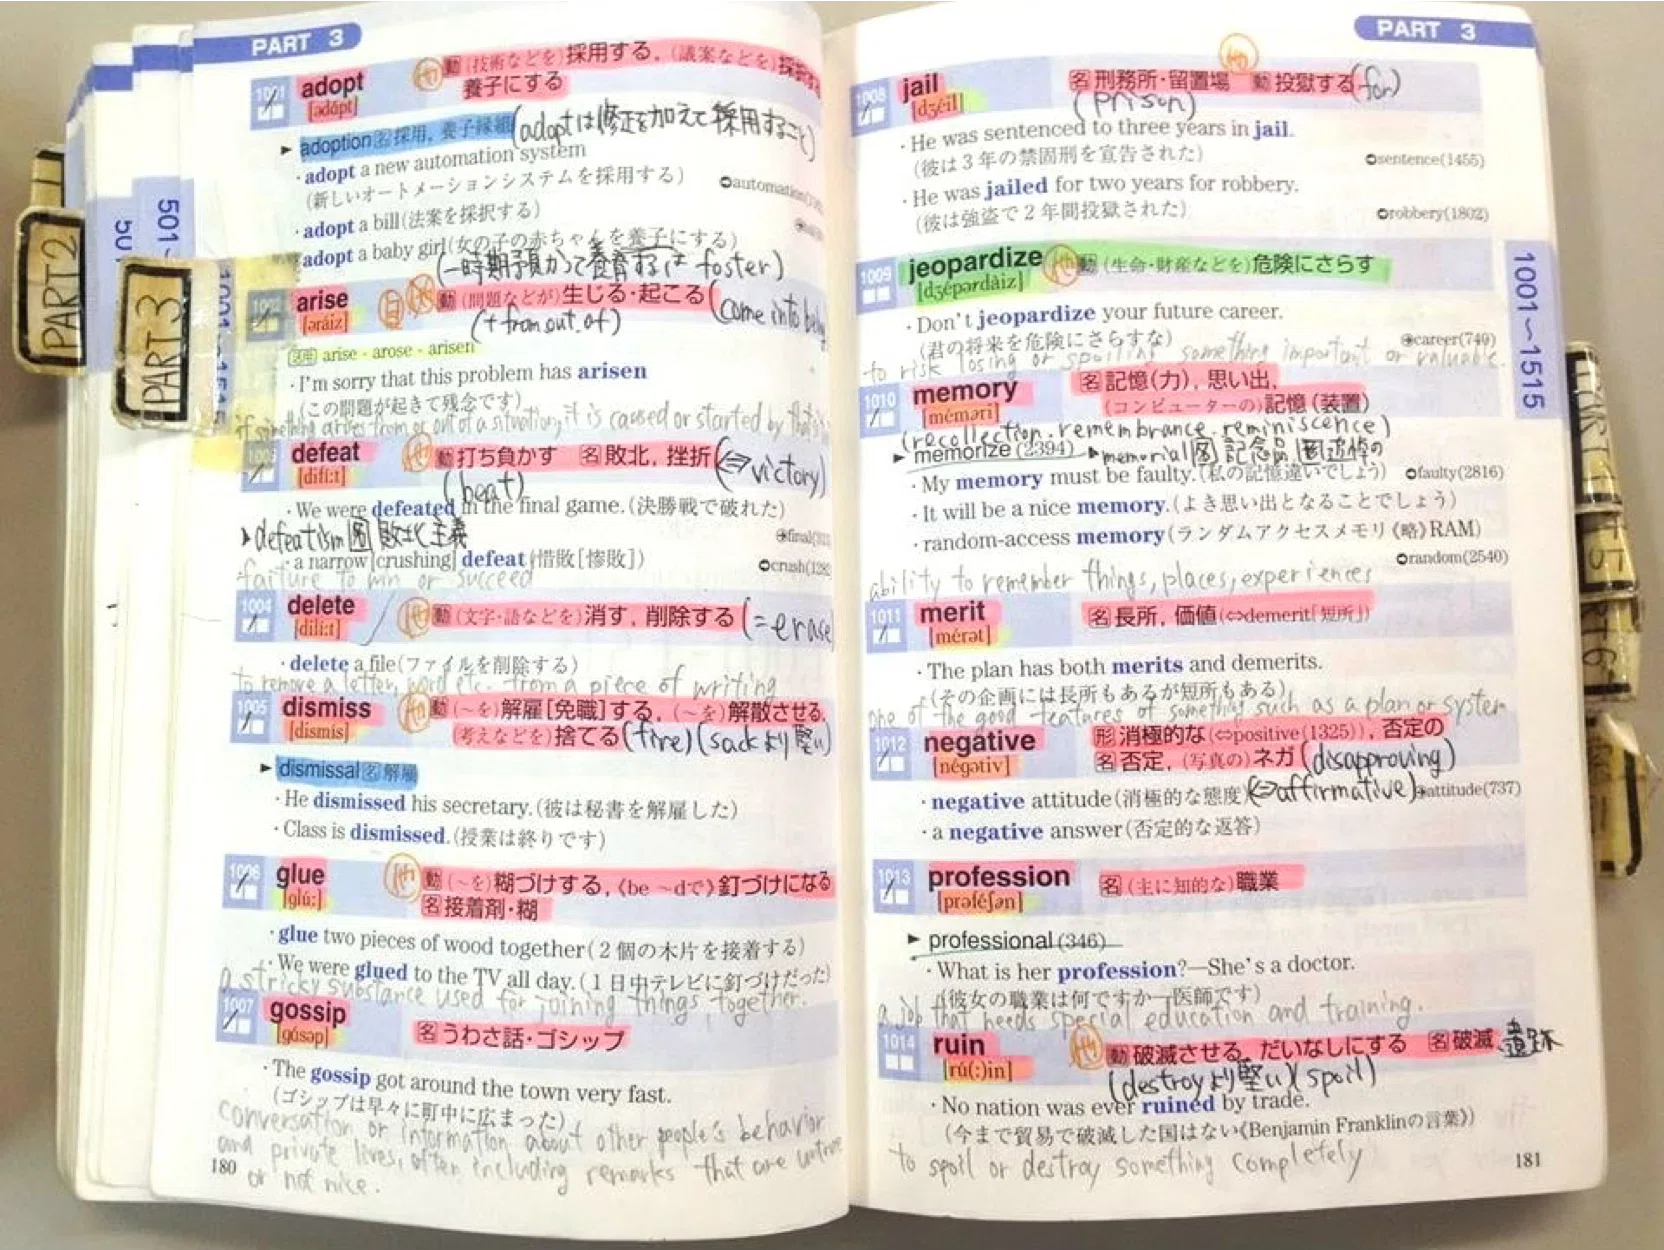 PART 3
1001 adopt 他 動(技術などを)採用する,(議案などを)採択する
[ədápt] 養子にする
▶ adoption 名 採用, 養子縁組 (adaptは修正を加えて採用すること)
・adopt a new automation system
(新しいオートメーションシステムを採用する) automation
・adopt a bill(法案を採択する)
・adopt a baby girl(女の子の赤ちゃんを養子にする)
(一時期預かって養育するは foster)
1002 arise 自 動(問題などが)生じる・起こる (come into being
[əráiz] (+from, out of)
活用 arise - arose - arisen
・I'm sorry that this problem has arisen
(この問題が起きて残念です)
if something arises from or out of a situation, it is caused or started by that
1003 defeat 他 動 打ち負かす 名 敗北, 挫折 (⇔victory)
[difíːt] (beat)
・We were defeated in the final game.(決勝戦で破れた)
▶defeatism 名 敗北主義 final
・a narrow[crushing] defeat(惜敗[惨敗]) crush
failure to win or succeed
1004 delete 他 動(文字・語などを)消す, 削除する (= erase
[dilíːt]
・delete a file(ファイルを削除する)
to remove a letter, word etc. from a piece of writing
1005 dismiss 他 動(~を)解雇[免職]する,(~を)解散させる,
[dismís] (考えなどを)捨てる (fire)(sackより堅い)
▶ dismissal 名 解雇
・He dismissed his secretary.(彼は秘書を解雇した)
・Class is dismissed.(授業は終りです)
1006 glue 他 動(~を)糊づけする,《be ~dで》釘づけになる
[glúː] 名 接着剤・糊
・glue two pieces of wood together(2個の木片を接着する)
・We were glued to the TV all day.(1日中テレビに釘づけだった)
a stricky substance used for joining things together.
1007 gossip 名 うわさ話・ゴシップ
[gásəp]
・The gossip got around the town very fast.
(ゴシップは早々に町中に広まった)
conversation or information about other people's behavior
and private lives, often including remarks that are untrue
or not nice.
180
PART 3
1008 jail 名 刑務所・留置場 他 動 投獄する (for)
[dʒéil] (prison)
・He was sentenced to three years in jail.
(彼は3年の禁固刑を宣告された) sentence(1455)
・He was jailed for two years for robbery.
(彼は強盗で2年間投獄された) robbery(1802)
1009 jeopardize 他 動(生命・財産などを)危険にさらす
[dʒépərdàiz]
・Don't jeopardize your future career.
(君の将来を危険にさらすな) career(749)
to risk losing or spoiling something important or valuable.
1010 memory 名 記憶(力), 思い出,
[méməri] (コンピューターの)記憶(装置)
(recollection. remembrance. reminiscence)
▶ memorize (2394) ▶memorial 名 記念品 形 追悼の
・My memory must be faulty.(私の記憶違いでしょう) faulty(2816)
・It will be a nice memory.(よき思い出となることでしょう)
・random-access memory(ランダムアクセスメモリ《略》RAM)
random(2540)
ability to remember things, places, experiences
1011 merit 名 長所, 価値(⇔demerit「短所」)
[mérət]
・The plan has both merits and demerits.
(その企画には長所もあるが短所もある)
one of the good features of something such as a plan or system
1012 negative 形 消極的な(⇔positive(1325)), 否定の
[négətiv] 名 否定,(写真の)ネガ (disapproving)
・negative attitude(消極的な態度) (⇔affirmative) attitude(737)
・a negative answer(否定的な返答)
1013 profession 名(主に知的な)職業
[prəféʃən]
▶ professional (346)
・What is her profession?—She's a doctor.
(彼女の職業は何ですか—医師です)
a job that needs special education and training.
1014 ruin 他 動 破滅させる, だいなしにする 名 破滅, 遺跡
[rú(ː)in] (destroyより堅い)(spoil)
・No nation was ever ruined by trade.
(今まで貿易で破滅した国はない《Benjamin Franklinの言葉》)
to spoil or destroy something completely
181
PART2
PART3
501~
1001~1515